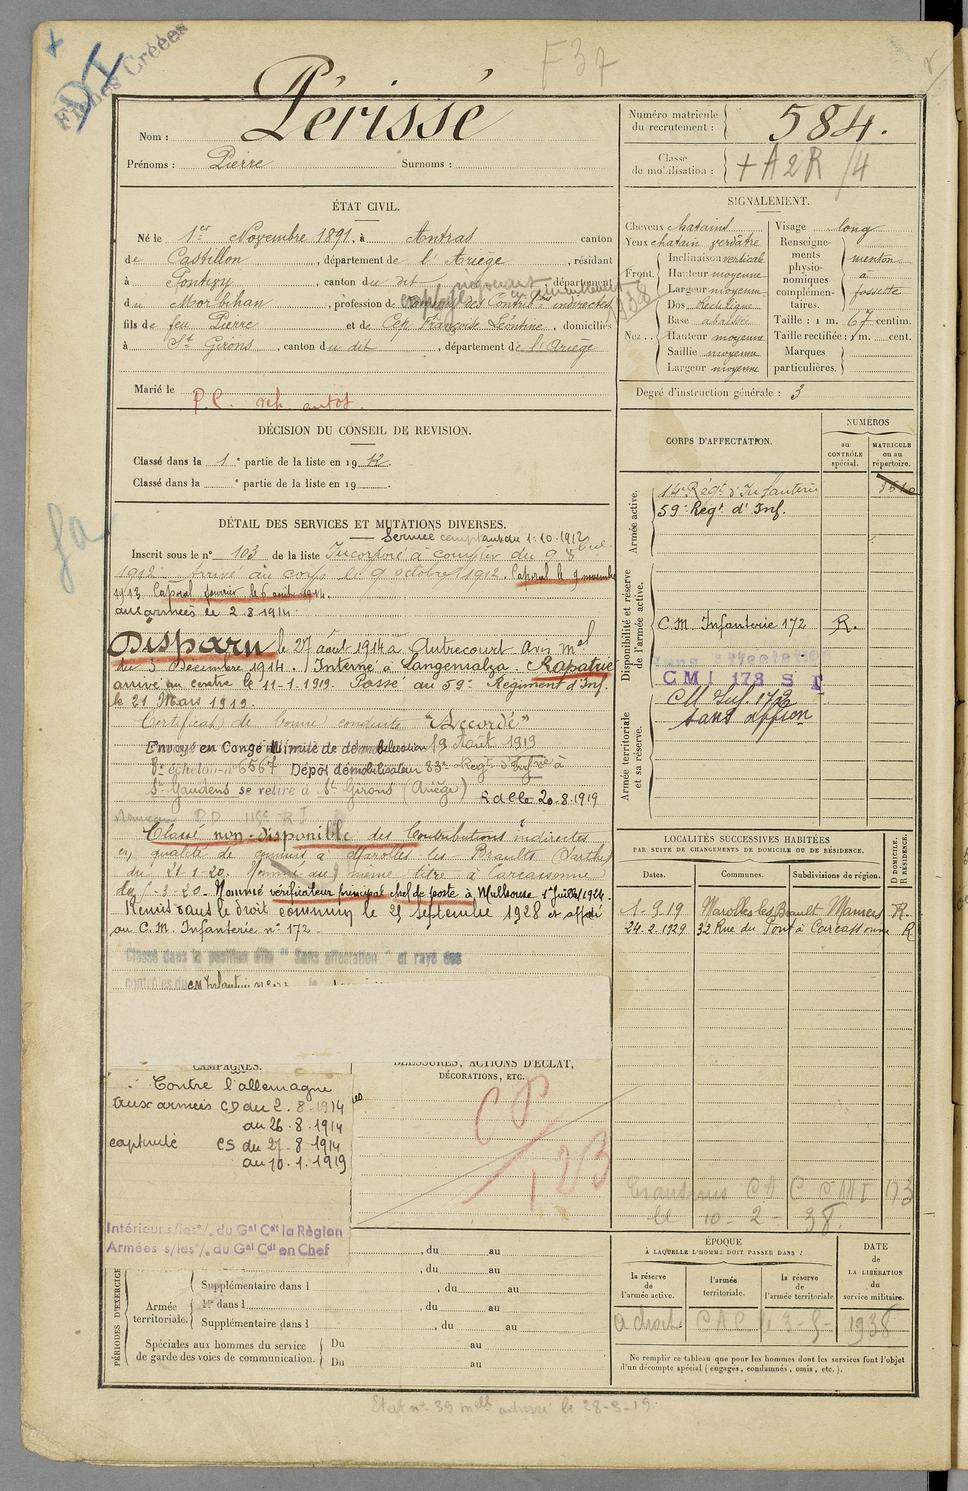 Fiches Créées
F37
Nom : Périssé
Prénoms : Pierre Surnoms :
ÉTAT CIVIL.
Né le 1er Novembre 1891, à Antras canton
de Castillon, département de l'Ariège, résidant
à Pontivy, canton du dit, département
du Morbihan, profession de Employé des Contrib. indirectes
fils de feu Pierre et de Cép Françoise Léontine, domiciliés
à St Girons, canton du dit, département de l'Ariège
Marié le
P.C.
DÉCISION DU CONSEIL DE REVISION.
Classé dans la 1e partie de la liste en 1912.
Classé dans la e partie de la liste en 19
DÉTAIL DES SERVICES ET MUTATIONS DIVERSES.
Service comptant du 1-10-1912
Inscrit sous le n° 103 de la liste Incorporé à compter du 9 8bre
1912 Arrivé au corps le 9 octobre 1912. Caporal le 9 novembre
1913. Caporal fourrier le 6 août 1914.
aux armées le 2 8 1914.
Disparu le 27 août 1914 à Autrecourt Avis mel
du 3 Décembre 1914. Interné à Langensalza. Rapatrié
arrivé au centre le 11-1-1919. Passé au 59e Régiment d'Inf.
le 21 Mars 1919.
Certificat de bonne conduite "Accordé"
Envoyé en Congé illimité de démobilisation 19 Août 1919
8e échelon n° 6567 Dépôt démobilisateur 83e Regt d'Infrie à
St Gaudens se retire à St Girons (Ariège) R d C le 20-8-1919
Classé non-disponible des Contributions indirectes
en qualité de commis à Marolles-les-Braults Sarthe
du 21-1-20. Nommé au même titre à Carcassonne
du -3-20. Nommé vérificateur principal chef de poste à Mulhouse 1er Juillet 1924
Remis sous le droit commun le 21 septembre 1928 et affé
au C.M. Infanterie n° 172.
Classé dans la position dite "Sans affectation" et rayé des
contrôles du CM Infanterie
CAMPAGNES.
Contre l'allemagne
Aux armées CD du 2.8.1914
au 26.8.1914
capturé CS du 27.8.1914
au 10.1.1919
Intérieur s/les o/. du Gal Cdt la Région
Armées s/les o/. du Gal Cdt en Chef
BLESSURES, ACTIONS D'ÉCLAT,
DÉCORATIONS, ETC.
CP
123
PÉRIODES D'EXERCICE
, du au
, du au
Supplémentaire dans l , du au
Armée territoriale. 1re dans l , du au
Supplémentaire dans l , du au
Spéciales aux hommes du service
de garde des voies de communication.
Du au
Du au
Numéro matricule
du recrutement : 584.
Classe
de mobilisation : + A2R /4
SIGNALEMENT.
Cheveux chatains
Yeux chatain verdâtre
Front. Inclinaison verticale
Hauteur moyenne
Largeur moyenne
Nez. Dos rectiligne
Base abaissée
Hauteur moyenne
Saillie moyenne
Largeur moyenne
Visage long
Renseignements physionomiques complémentaires. menton à fossette
Taille : 1 m. 67 centim.
Taille rectifiée : 1 m. cent.
Marques
particulières.
Degré d'instruction générale : 3
CORPS D'AFFECTATION.
NUMÉROS
au CONTRÔLE spécial.
MATRICULE ou au répertoire.
Armée active.
14e Régt d'Infanterie
59e Regt d'Inf.
Disponibilité et réserve de l'armée active.
C.M. Infanterie 172 R.
Sans affectation
CMI 173 S T
Armée territoriale et sa réserve.
CM Inf. 172
sans affion
LOCALITÉS SUCCESSIVES HABITÉES
PAR SUITE DE CHANGEMENTS DE DOMICILE OU DE RÉSIDENCE.
Dates. Communes. Subdivisions de région. D DOMICILE. R RÉSIDENCE.
1-9.19 Marolles les Brault Mamers R.
24.2.1929 32 Rue du Pont à Carcassonne R
le 10-2-38.
ÉPOQUE
À LAQUELLE L'HOMME DOIT PASSER DANS :
la réserve de l'armée active.
l'armée territoriale.
la réserve de l'armée territoriale
DATE de LA LIBÉRATION du service militaire.
a droit CAC le 3-5- 1938
Ne remplir ce tableau que pour les hommes dont les services font l'objet
d'un décompte spécial (engagés, condamnés, omis, etc.).
Etat n° 39 melle adressé le 28-3-19.